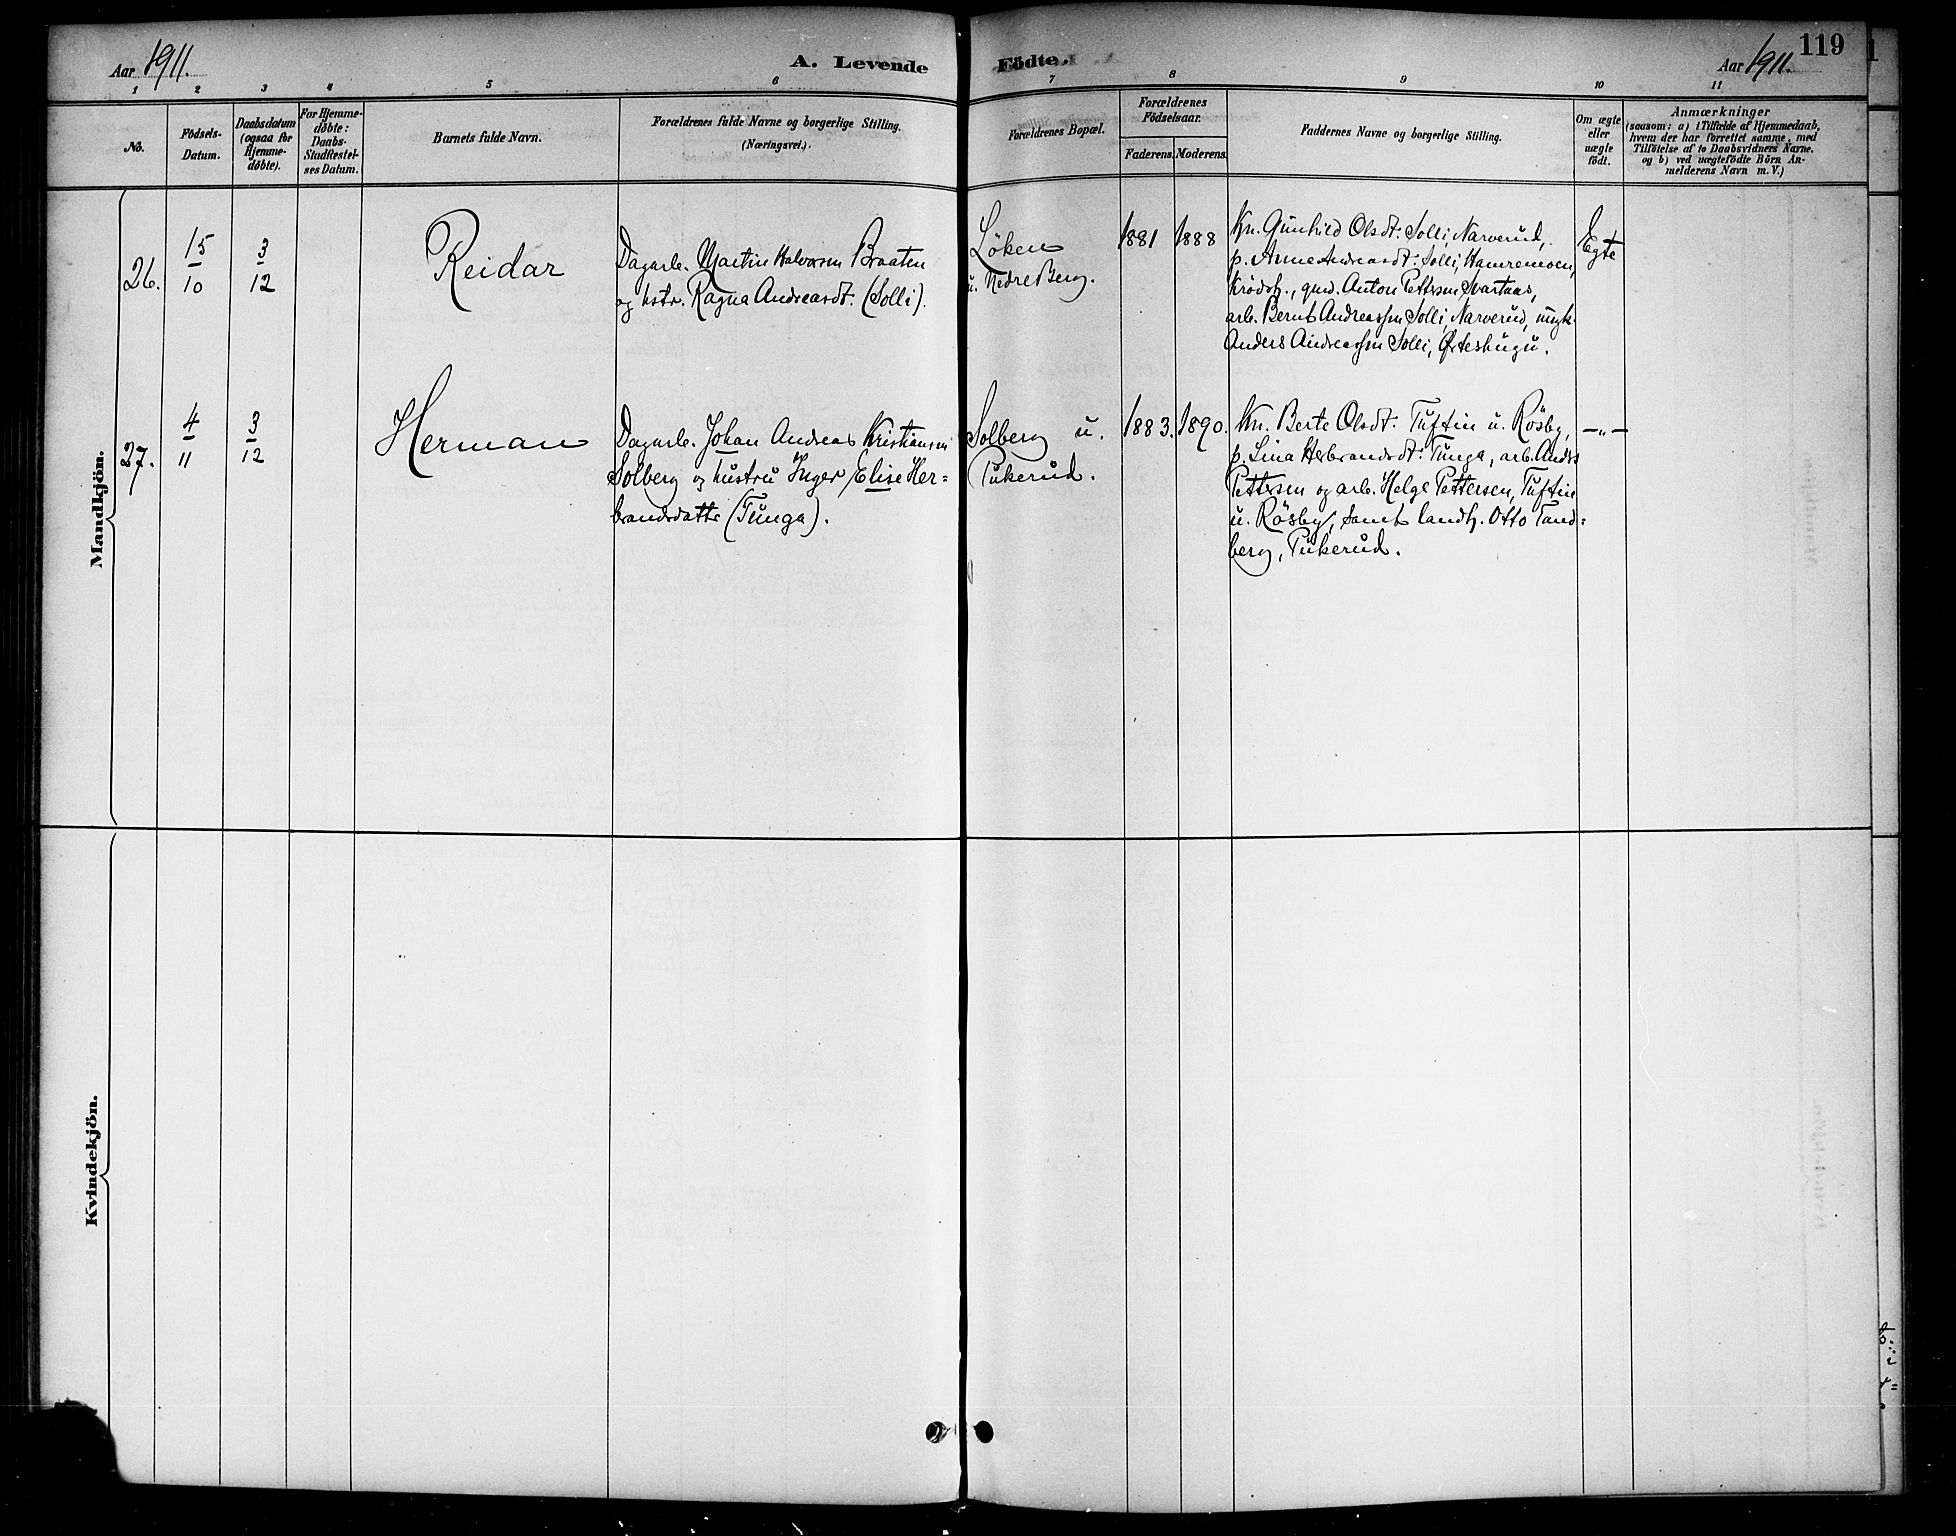 Aar 1911.
A. Levende
Födte.
Aar 1911.
119
1 2 3 4 5 6 7 8 9 10 11
No.
Födsels-
Datum.
Daabsdatum
(ogsaa for
Hjemme-
döbte).
For Hjemme-
döbte:
Daabs-
Stadfæstel-
ses Datum.
Barnets fulde Navn.
Forældrenes fulde Navne og borgerlige Stilling.
(Næringsvei.).
Forældrenes Bopæl.
Forældrenes
Födselsaar.
Faderens.
Moderens.
Faddernes Navne og borgerlige Stilling.
Om ægte
eller
uægte
födt.
Anmærkninger
(saasom: a) i Tilfælde af Hjemmedaab,
hvem der har forrettet samme, med
Tilföielse af to Daabsvidners Navne,
og b) ved uægtefödte Börn An-
melderens Navn m.V.)
Mandkjön.
26.
15
10
3
12
Reidar
Dagarb. Martin Halvorsen Braaten
og hstr. Ragna Andreasdt. (Solli).
Løken
u. Nedre Berg.
1881
1888
Kn. Gunhild Olsdt. Solli, Narverud,
p. Anne Andreasdt. Solli, Hamremoen,
Krødsh., gmd. Anton Pettersen Svartaas,
arb. Bernt Andreassen Solli, Narverud, ungk.
Anders Andreassen Solli,
Egte
27.
4
11
3
12
Herman
Dagarb. Johan Andreas Kristiansen
Solberg og hustru Inger Elise Her=
brandsdatter (Tunga).
Solberg u.
Pukerud.
1883.
1890.
Kn. Berte Olsdt. Tuftin u. Rösby,
p. Lina Herbrandsdt. Tunga, arb. Anders
Pettersen og arb. Helge Pettersen, Tuftin
u. Rösby, samt landh. Otto Tand=
berg, Pukerud.
—„—
Kvindekjön.